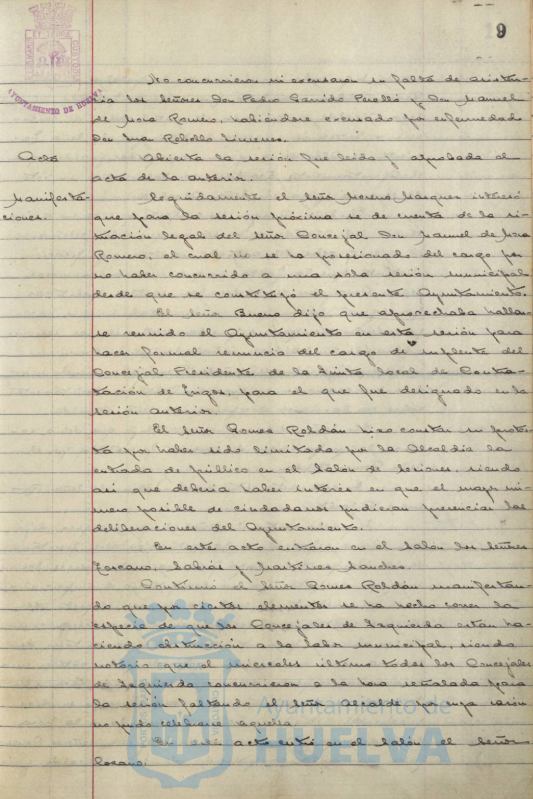 9
AYUNTAMIENTO DE HUELVA
No concurrieron ni excusaron su falta de asisten-
cia los señores Don Pedro Garrido Perelló y Don Manuel
de Mora Romero, habiéndose excusado por enfermedad
Don Rebollo Jimenez.
Acta Abierta la sesión fue leida y aprobada el
acta de la anterior.
Manifesta- Seguidamente el Señor Moreno Marquez interesó
ciones. que para la sesión próxima se dé cuenta de la si-
tuación legal del señor Concejal Don Manuel de Mora
Romero, el cual no se ha posesionado del cargo por
no haber concurrido a una sola sesión municipal
desde que se constituyó el presente Ayuntamiento.
El Señor Bueno dijo que aprovechaba hallar-
se reunido el Ayuntamiento en esta sesión para
hacer formal renuncia del cargo de suplente del
Concejal Presidente de la Junta local de Contra-
tación de Trigos, para el que fue designado en la
sesión anterior.
El Señor Gomez Roldán hizo constar su protes-
ta por haber sido limitada por la Alcaldia la
entrada de público en el Salón de Sesiones, siendo
asi que debería haber interés en que el mayor nú-
mero posible de ciudadanos pudieran presenciar las
deliberaciones del Ayuntamiento.
En este acto entraron en el Salon los Señores
Toscano, Sabrás y Martinez Sanchez.
Continuó el Señor Gomez Roldán manifestan-
do que por ciertos elementos se ha hecho correr la
especie de que los Concejales de Izquierda están ha-
ciendo obstrucción a la labor municipal, siendo
notorio que el miercoles último todos los Concejales
de Izquierda concurrieron a la hora señalada para
la sesión faltando el Señor Alcalde por cuya razón
no pudo celebrarse aquella.
En este acto entró en el Salón el Señor
Lozano.
Ayuntamiento de
HUELVA